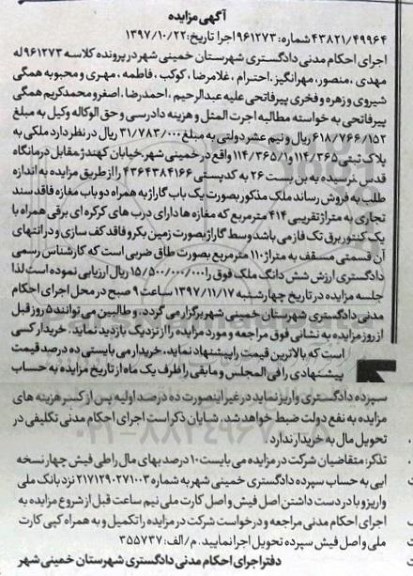 آگهی مزایده
۴۳۸۲۱/۴۹۹۶۴ شماره: ۹۶۱۲۷۳ اجرا تاریخ: ۱۳۹۷/۱۰/۲۲
اجرای احکام مدنی دادگستری شهرستان خمینی شهر در پرونده کلاسه ۹۶۱۲۷۳ له
مهدی ، منصور، مهرانگیز .احترام ، غلامرضا ، کوکب ، فاطمه ، مهری و محبوبه همگی
شیروی و زهره و فخری پیرفاتحی علیه عبدالرحیم ، احمدرضا ، اصغر و محمدکریم همگی
پیرفاتحی به خواسته مطالبه اجرت المثل و هزینه دادرسی و حق الوکاله وکیل به مبلغ
۶۱۸/۷۶۶/۱۵۲ ریال و نیم عشر دولتی به مبلغ ۳۱/۷۸۳/۰۰۰ ریال در نظر دارد ملکی به
پلاک ثبتی ۱۱۴/۳۶۵ و ۱۱۴/۳۶۵/۱ واقع در خمینی شهر خیابان کهندژ مقابل درمانگاه
قدس .نرسیده به بن بست ۲۶ به کدپستی ۴۳۶۴۳۸۴۱۶۶ را از طریق مزایده به اندازه
طلب به فروش رساند ملک مذکور بصورت یک باب گاراژ به همراه دو باب مغازه فاقد سند
تجاری به متراژ تقریبی ۴۱۴ مترمربع که مغازه ها دارای درب های کرکره ای برقی همراه با
یک کنتور برق تک فاز می باشد وسط گاراژ بصورت زمین بکر و فاقد کف سازی و در انتهای
آن قسمتی مسقف به متراژ ۱۱۰ مترمربع بصورت طاق ضربی است که کارشناس رسمی
دادگستری ارزش شش دانگ ملک فوق را ۱۵/۵۰۰/۰۰۰/۰۰۰ ریال ارزیابی نموده است لذا
جلسه مزایده در تاریخ چهارشنبه ۱۳۹۷/۱۱/۱۷ ساعت ۹ صبح در محل اجرای احکام
مدنی دادگستری شهرستان خمینی شهر برگزار می گردد . و طالبین می توانند ۵ روز قبل
از روز مزایده به نشانی فوق مراجعه و مورد مزایده را از نزدیک بازدید نماید. خریدار کسی
است که بالاترین قیمت را پیشنهاد نماید، خریدار می بایستی ده درصد قیمت
پیشنهادی را فی المجلس و مابقی را ظرف یک ماه از تاریخ مزایده به حساب
سپرده دادگستری واریز نماید در غیر اینصورت ده درصد اولیه پس از کسر هزینه های
مزایده به نفع دولت ضبط خواهد شد. شایان ذکر است اجرای احکام مدنی تکلیفی در
تحویل مال به خریدار ندارد
تذکر: متقاضیان شرکت در مزایده می بایست ۱۰ درصد بهای مال را طی فیش چهار نسخه
ایی به حساب سپرده دادگستری خمینی شهر به شماره ۲۱۷۱۲۹۰۲۷۱۰۰۳ نزد بانک ملی
واریز و با در دست داشتن اصل فیش و اصل کارت ملی نیم ساعت قبل از شروع مزایده به
اجرای احکام مدنی مراجعه و درخواست شرکت در مزایده را تکمیل و به همراه کپی کارت
ملی و اصل فیش سپرده تحویل اجرا نمایید. م/الف: ۳۵۵۷۳۷
دفتر اجرای احکام مدنی دادگستری شهرستان خمینی شهر